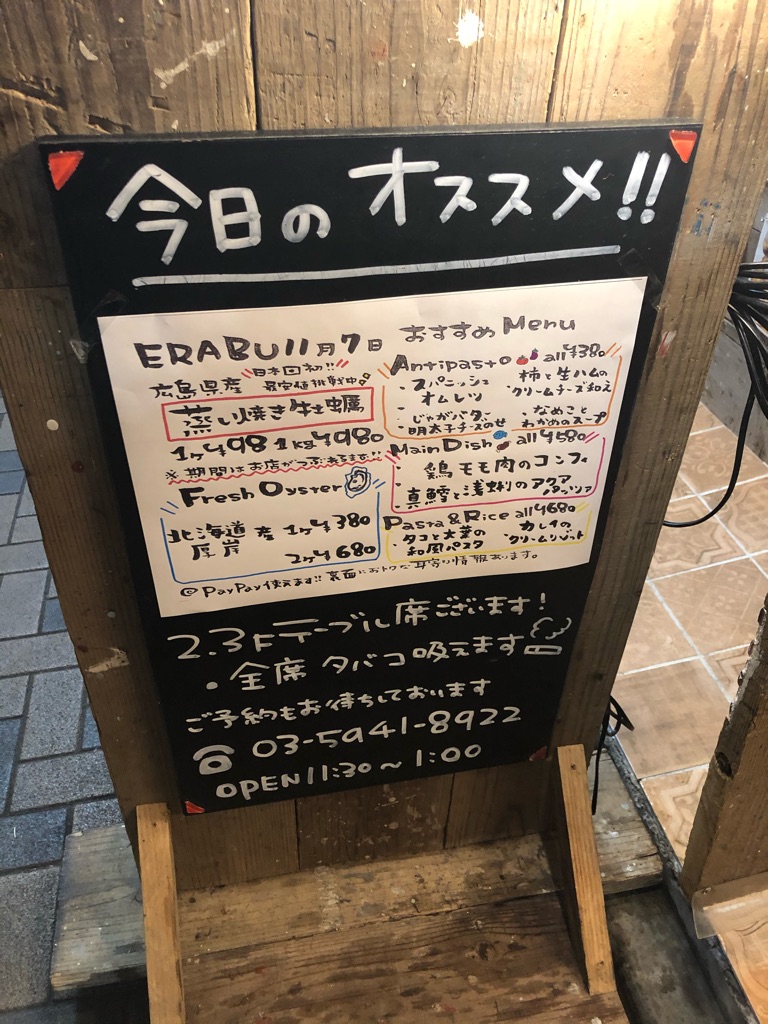 今日のオススメ!!
ERABU 11月7日 おすすめ Menu
日本回初!!
広島県産 最安値挑戦中
蒸し焼き牡蠣
1ヶ¥98 1kg¥980
※期間はお店がつぶれるまで!!
Fresh Oyster
北海道産 1ヶ¥380
厚岸
2ヶ¥680
Antipasto all¥380
・スパニッシュオムレツ
・柿と生ハムのクリームチーズ和え
・じゃがバター明太子チーズのせ
・なめことわかめのスープ
Main Dish all¥580
・鶏モモ肉のコンフィ
・真鱈と浅蜊のアクアパッツァ
Pasta & Rice all¥680
・タコと大葉の和風パスタ
・カレイのクリームリゾット
PayPay使えます!! 裏面におトクな耳寄り情報あります。
2.3Fテーブル席ございます!
・全席タバコ吸えます
ご予約もお待ちしております
☎ 03-5941-8922
OPEN 11:30~1:00